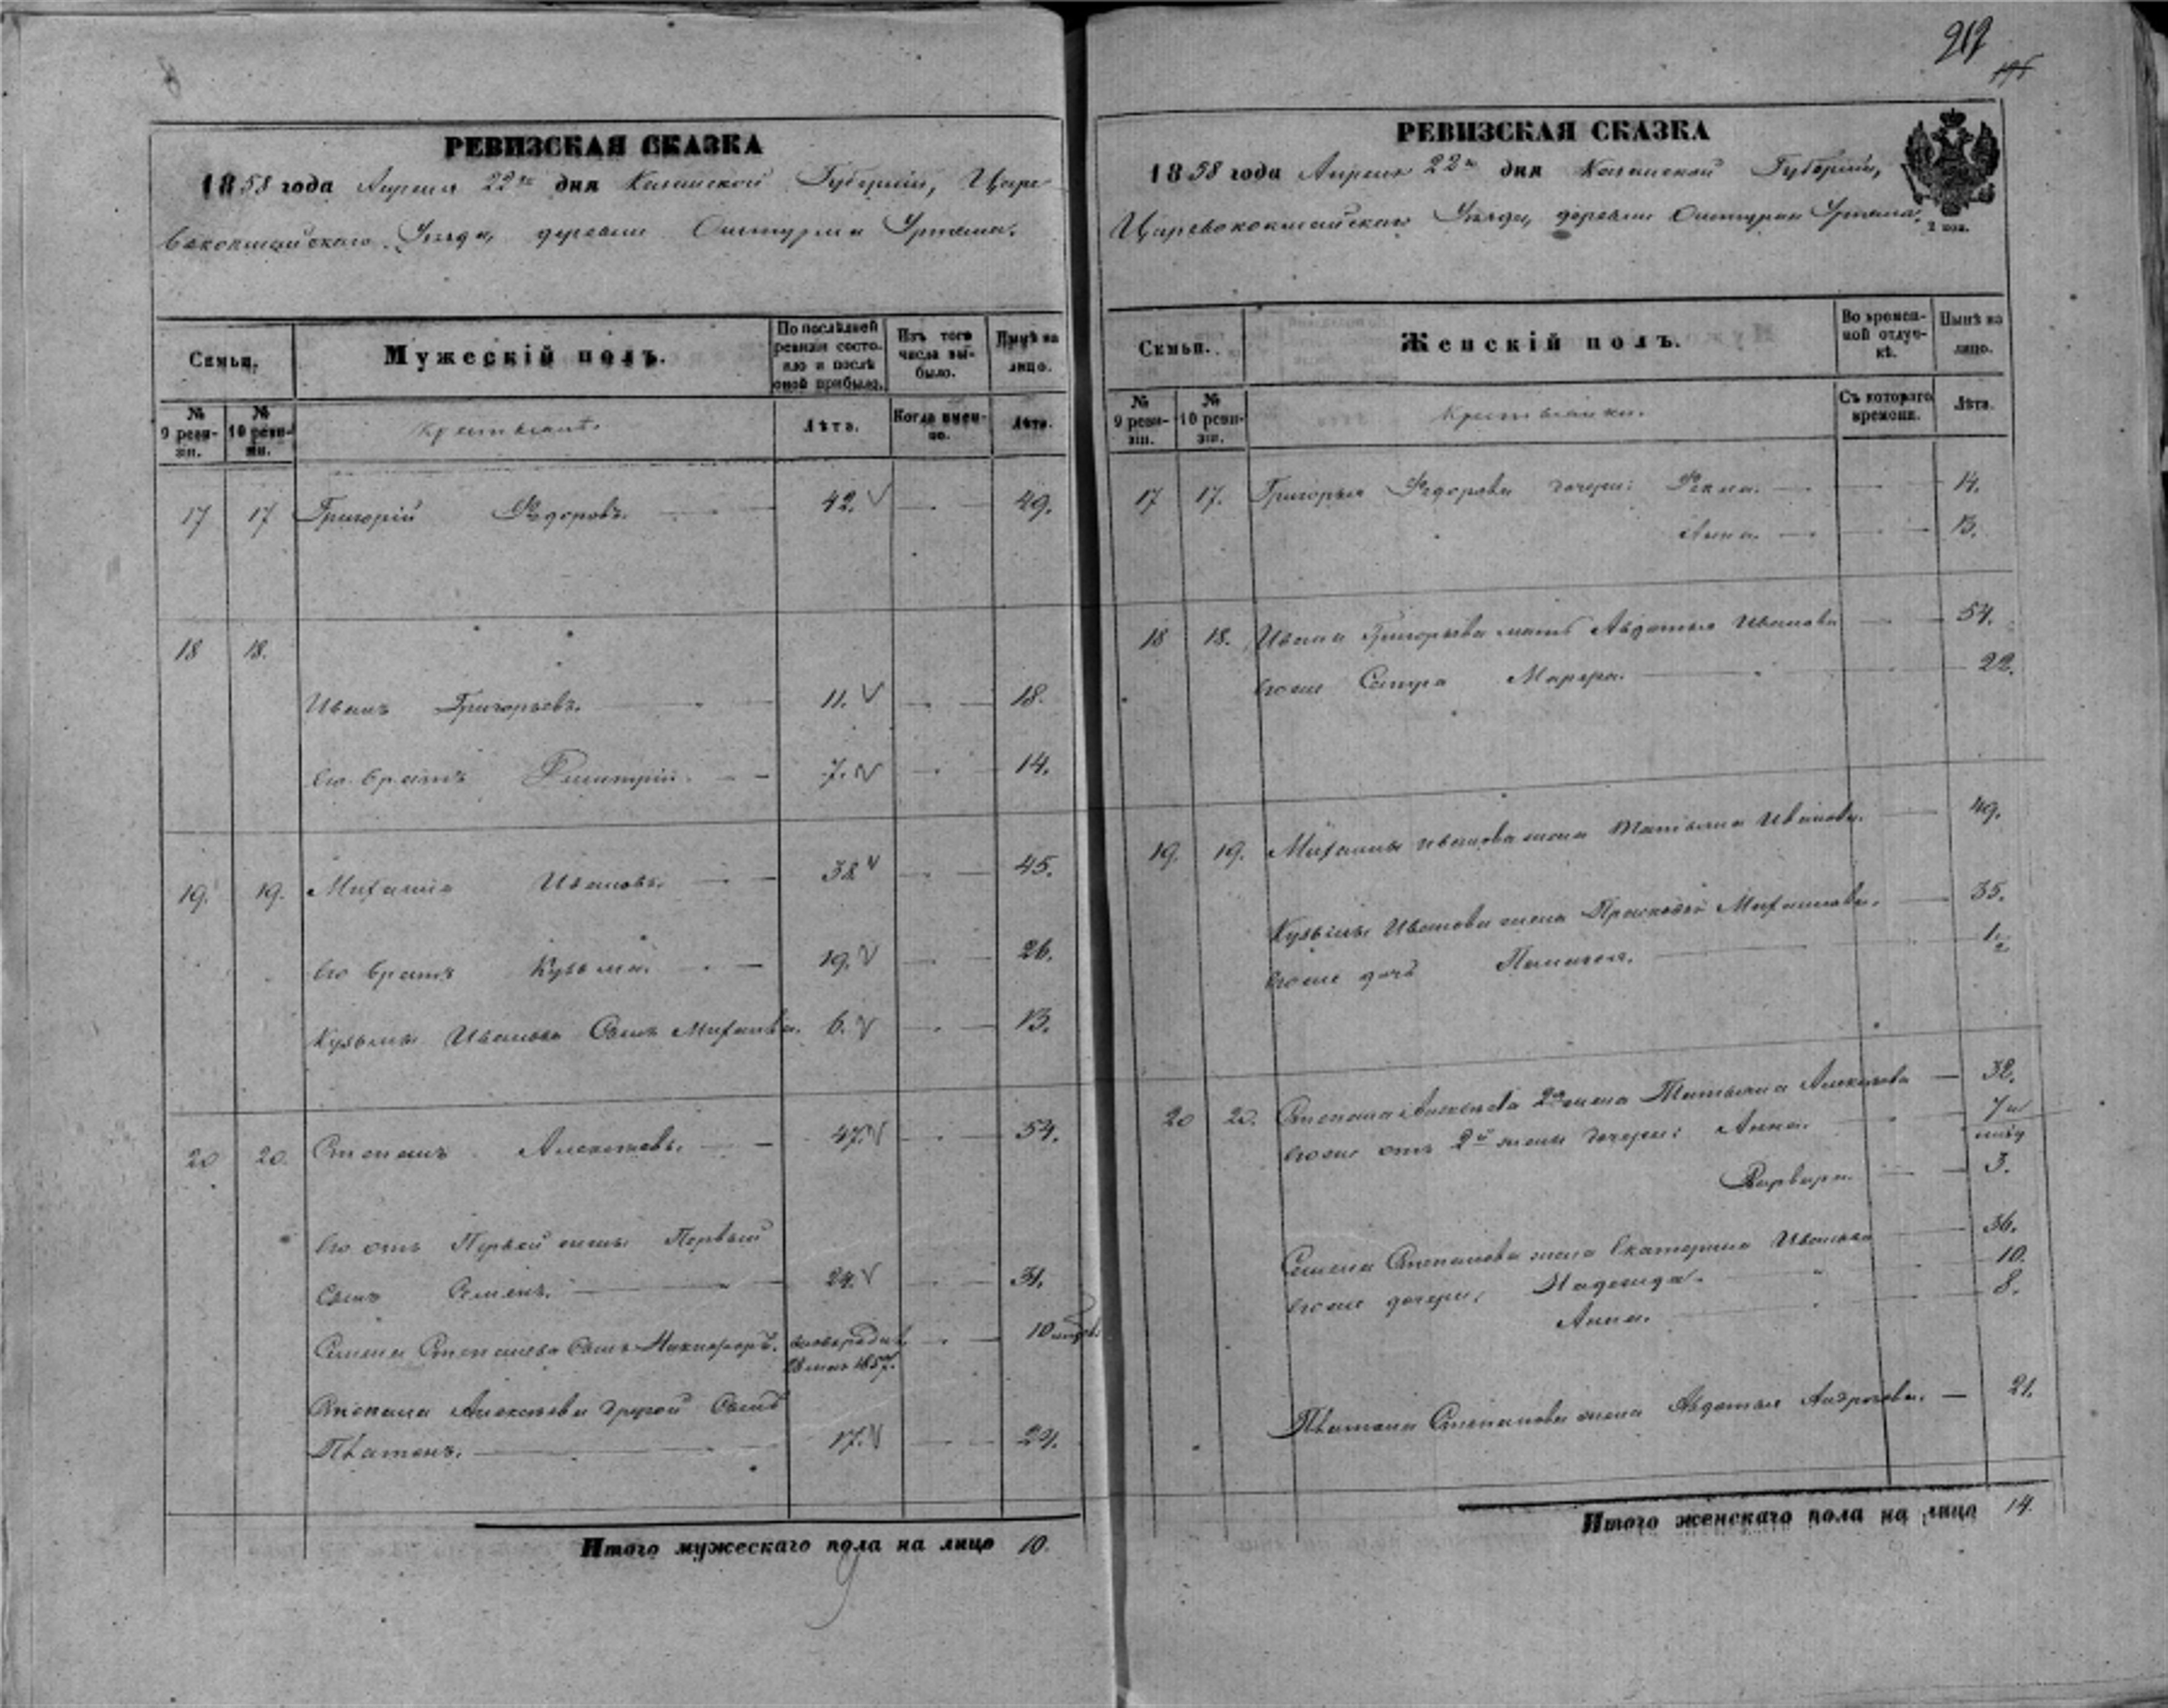 212
РЕВИЗСКАЯ СКАЗКА
1858 года Апреля 22го дня Казанской Губерніи, Царе
вококшайскаго Уѣзда, деревни Ошturма
Семьи.
Мужескій полъ.
По послѣдней ревизіи состояло и послѣ оной прибыло.
Изъ того числа выбыло.
Нынѣ на лицо.
№ 9 ревизіи.
№ 10 ревизіи.
Крестьяне.
Лѣта.
Когда именно.
Лѣта.
17 17 Григорій Ѳедоровъ. 42. 49.
18 18.
Иванъ Григорьевъ. 11. 18.
Его братъ Дмитрій. 7. 14.
19. 19. Михайла Ивановъ. 38 45.
Его братъ Кузьма. 19. 26.
Кузьмы Иванова Сынъ Михайла. 6. 13.
20 20. Степанъ Алексѣевъ. 47. 54.
Его отъ Первой жены Первый
Сынъ Семенъ. 24. 31.
Семена Степанова Сынъ Никифоръ. 10
1857.
Степана Алексѣева другой Сынъ
Платонъ. 17. 24.
Итого мужескаго пола на лицо 10.
РЕВИЗСКАЯ СКАЗКА
1858 года Апреля 22го дня Казанской Губерніи,
Царевококшайскаго Уѣзда, деревни
2 коп.
Семьи.
Женскій полъ.
Во временной отлучкѣ.
Нынѣ на лицо.
№ 9 ревизіи.
№ 10 ревизіи.
Крестьянки.
Съ котораго времени.
Лѣта.
17 17. Григорья Ѳедорова дочери: Ѳекла. 14.
Анна. 13.
18 18. Ивана Григорьева мать Авдотья Иванова 54.
Его же Сестра Марфа. 22.
19. 19. Михайлы Иванова жена Татьяна Иванова. 49.
Кузьмы Иванова жена Прасковья Михайлова. 35.
Его же дочь Пелагея. 1/2
20 20. Степана Алексѣева 2я жена Татьяна Алексѣева 32.
Его же отъ 2й жены дочери: Анна. 7
Варвара. 3.
Семена Степанова жена Екатерина Иванова 36.
Его же дочери: Надежда. 10.
Анна. 8.
Платона Степанова жена Авдотья Андреева. 21.
Итого женскаго пола на лицо 14.